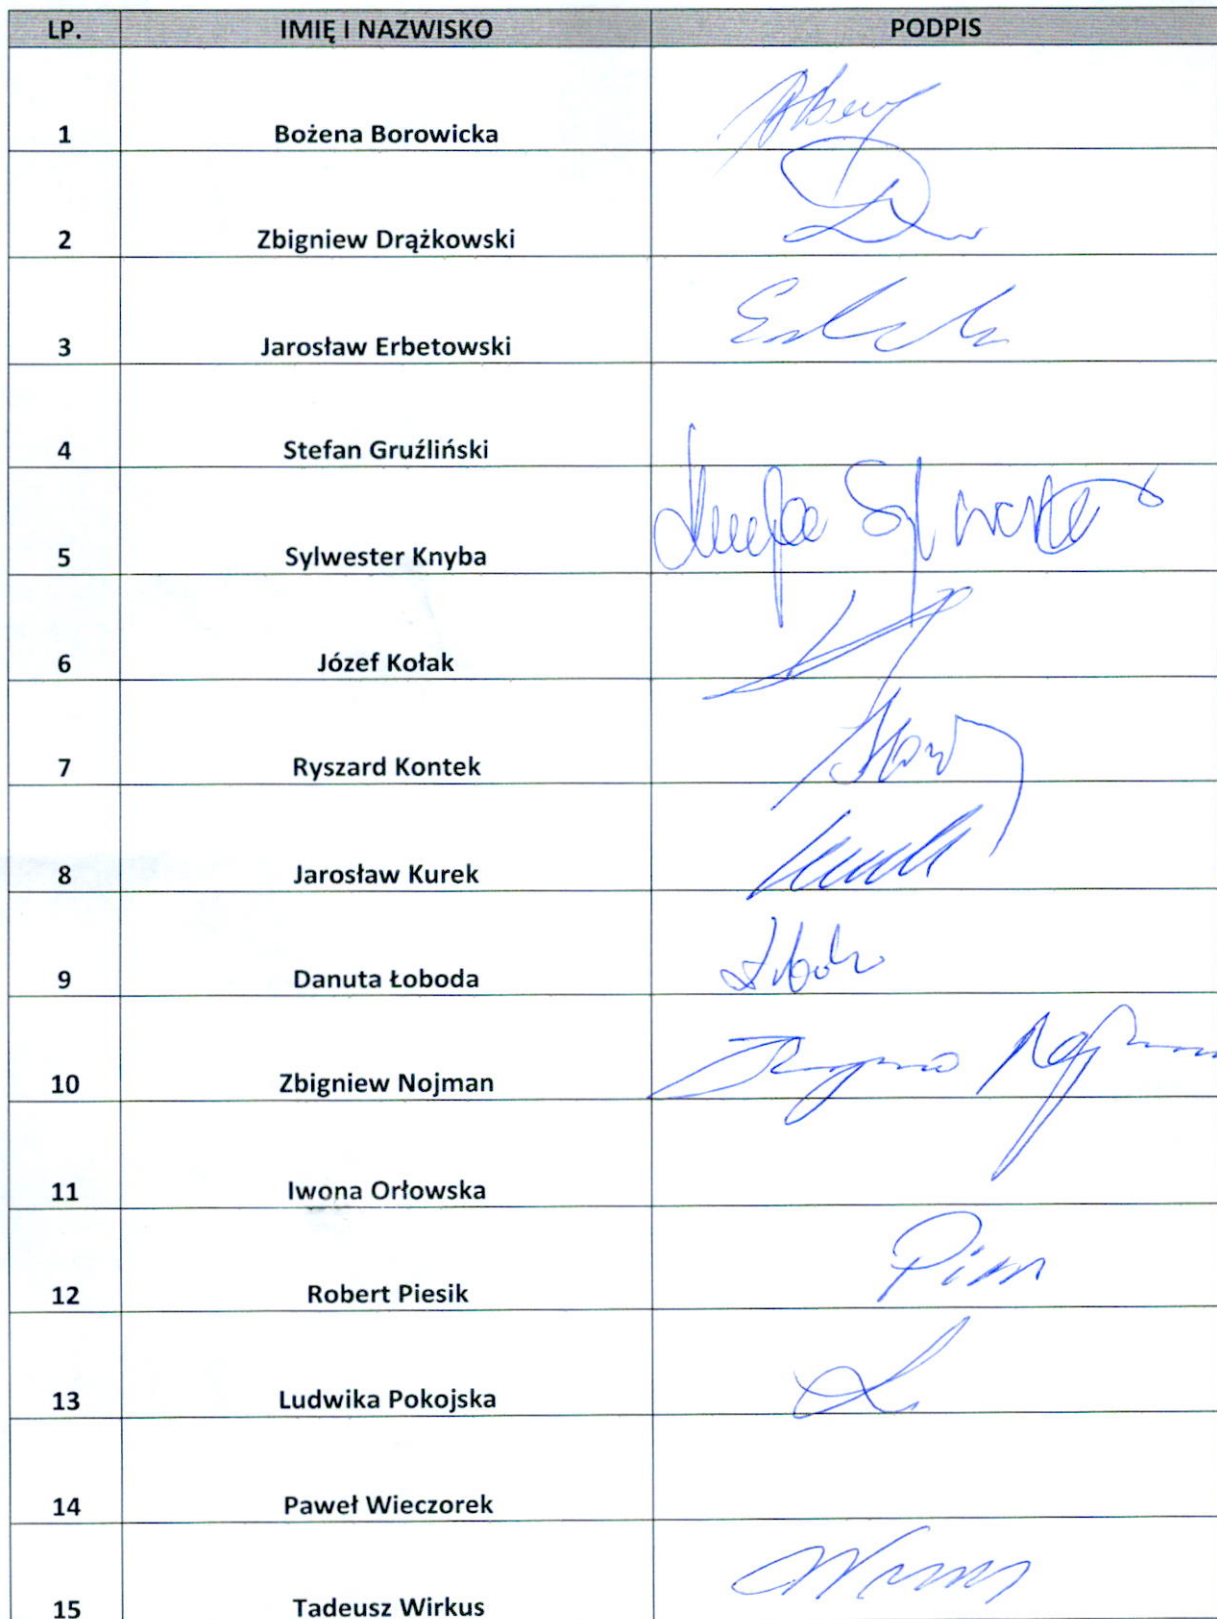 LP. IMIĘ I NAZWISKO PODPIS
1 Bożena Borowicka
2 Zbigniew Drążkowski
3 Jarosław Erbetowski
4 Stefan Gruźliński
5 Sylwester Knyba
6 Józef Kołak
7 Ryszard Kontek
8 Jarosław Kurek
9 Danuta Łoboda
10 Zbigniew Nojman
11 Iwona Orłowska
12 Robert Piesik
13 Ludwika Pokojska
14 Paweł Wieczorek
15 Tadeusz Wirkus